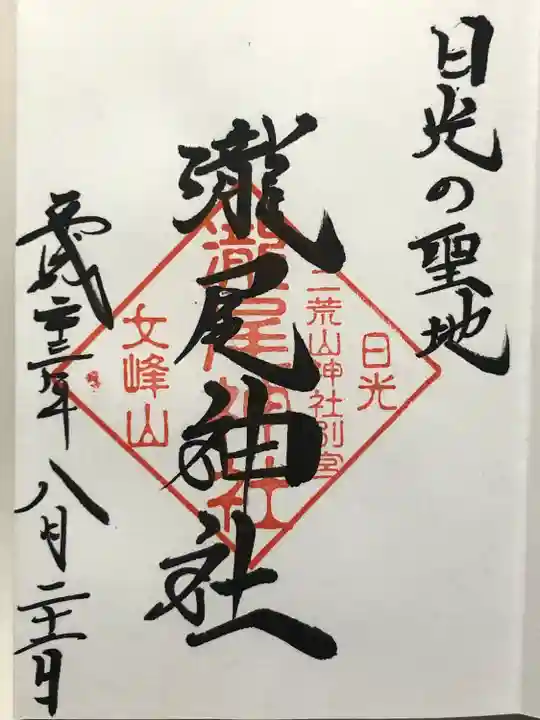 日光の聖地
瀧尾神社
日光
二荒山神社別宮
瀧尾神社
女峰山
八月二十一日